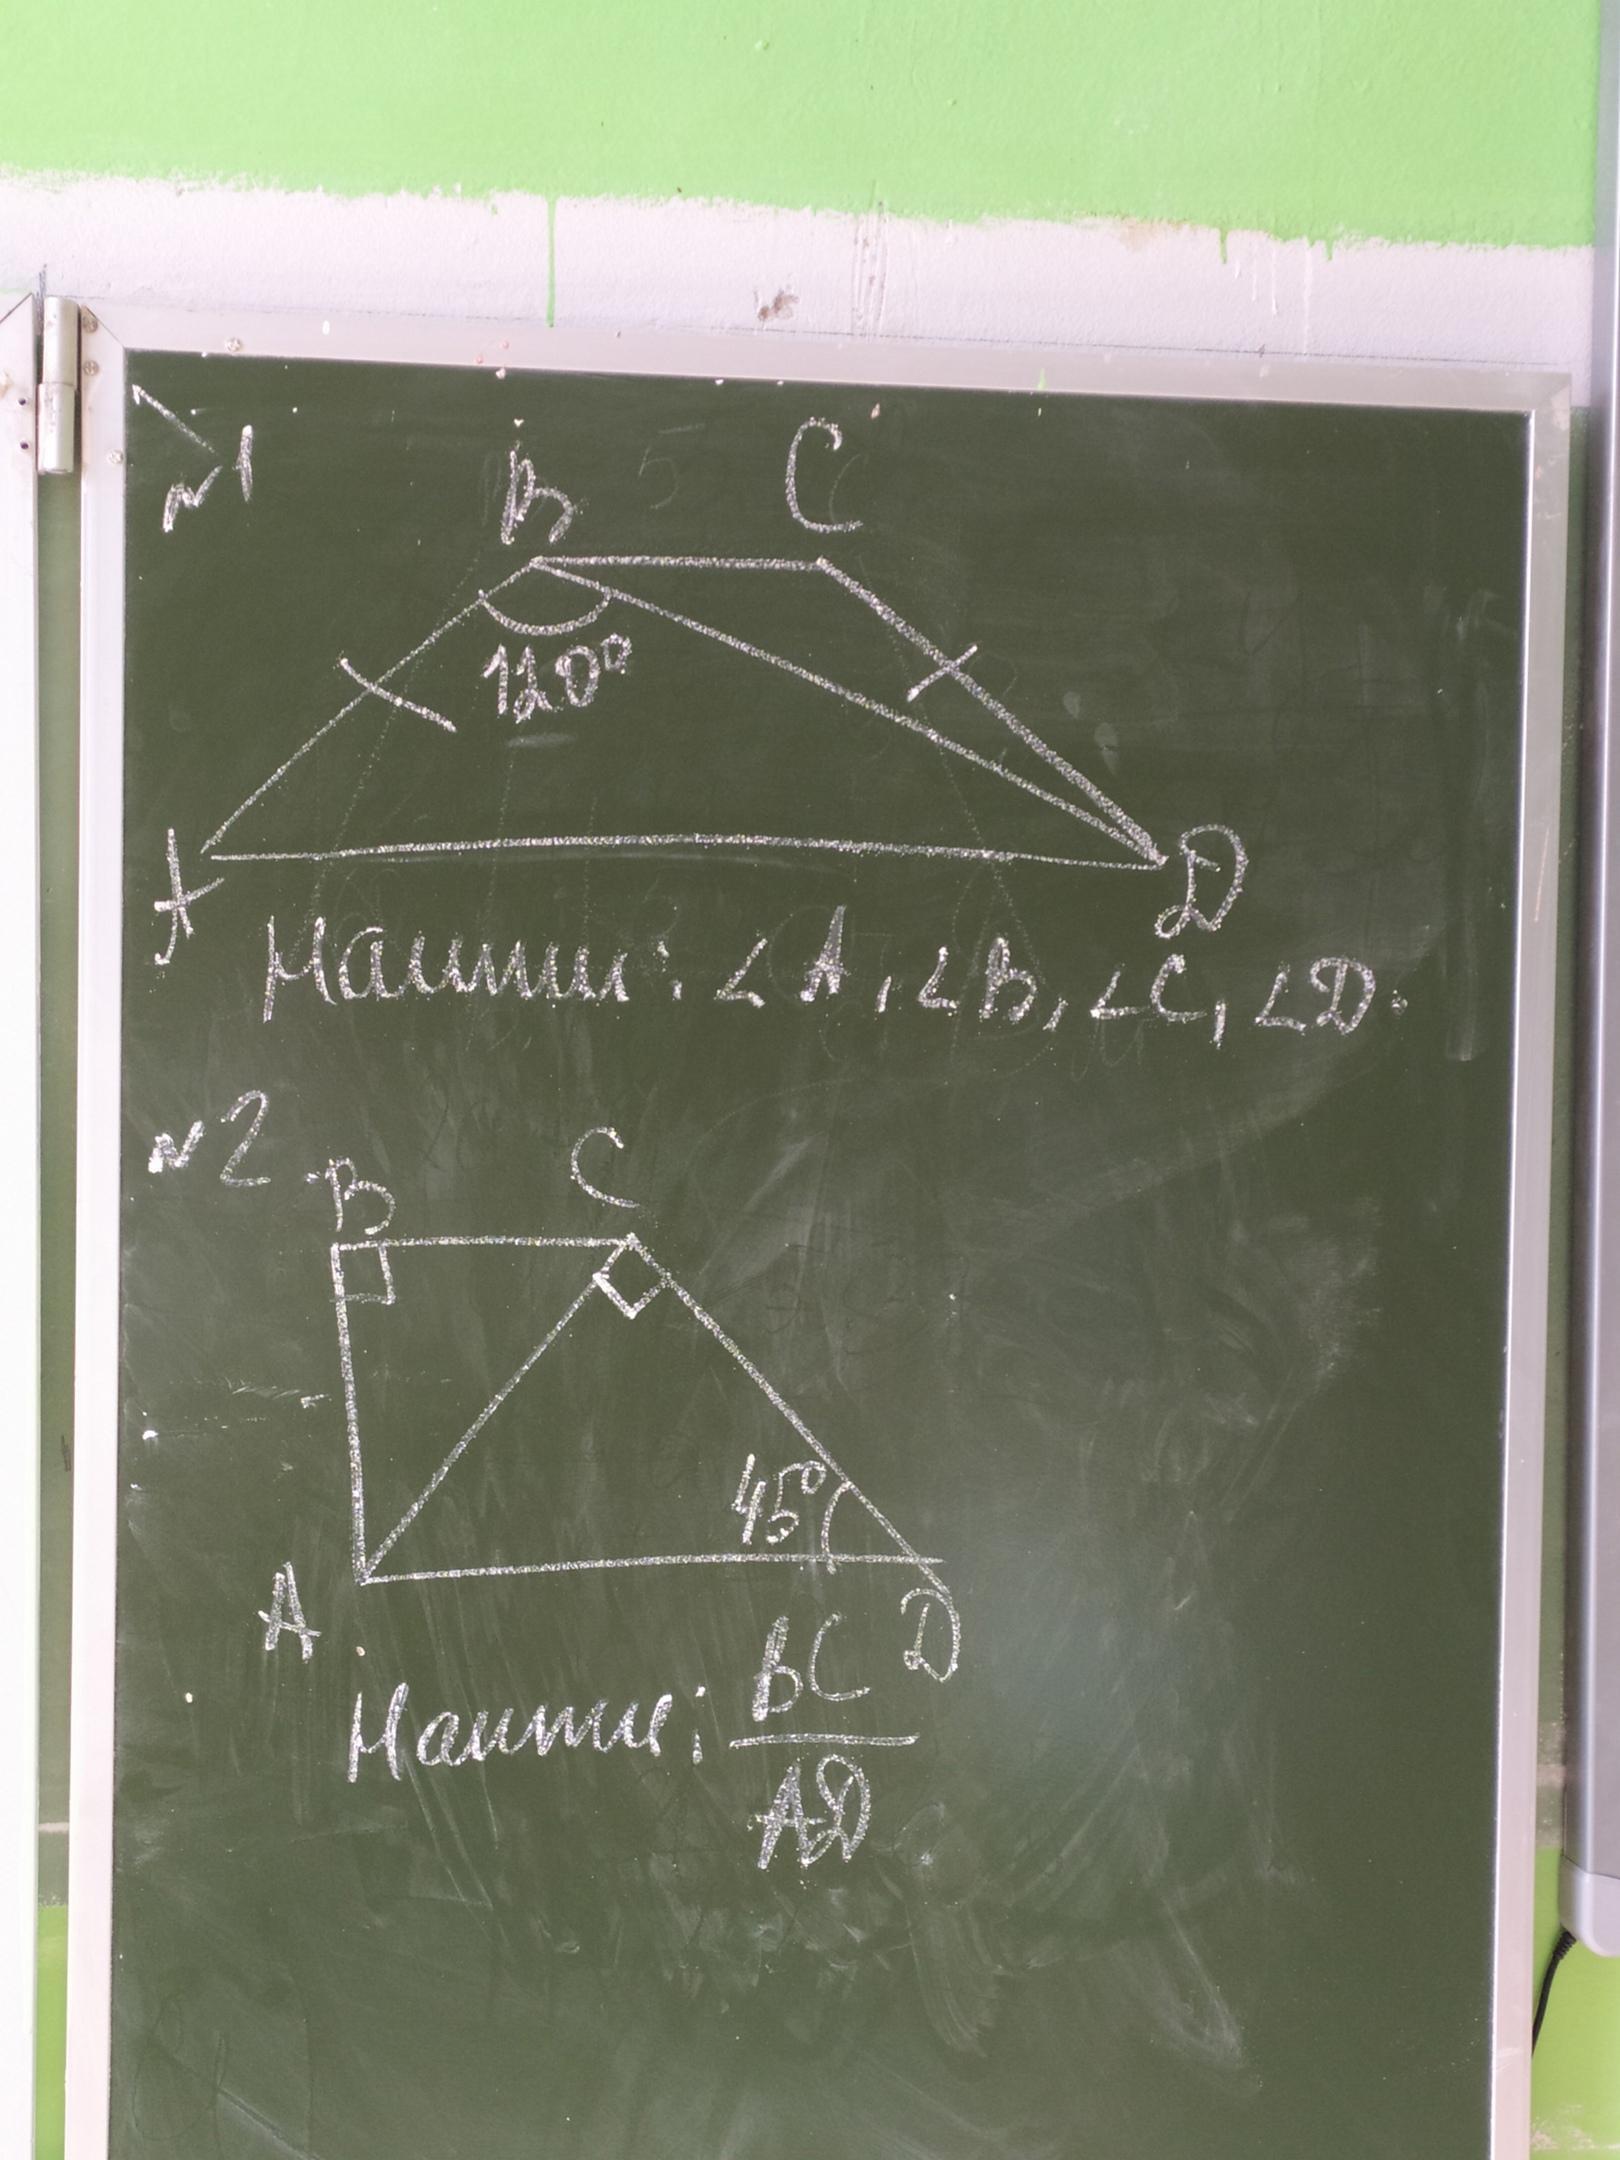 №1
B C
120°
A D
Найти: ∠A, ∠B, ∠C, ∠D.
№2
B C
45°
A D
Найти: BC/AD